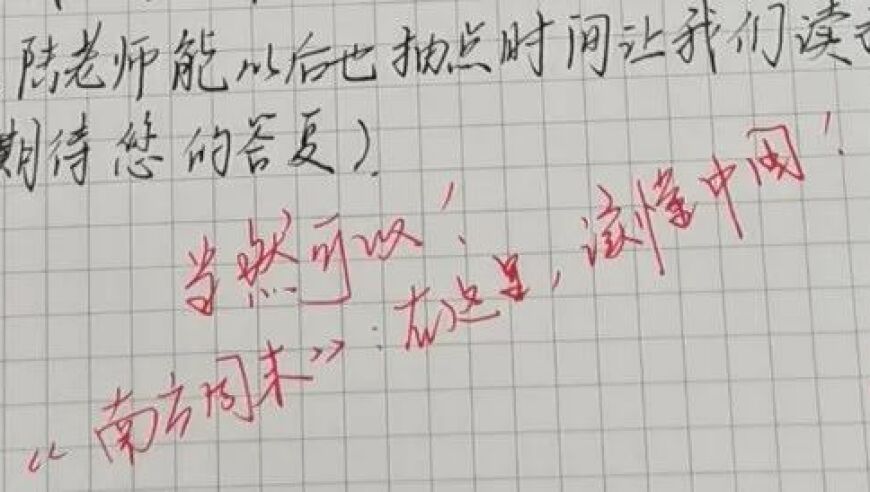 陆老师能以后也抽点时间让我们读
期待您的答复）.
当然可以！
《南方周末》：在这里，读懂中国！